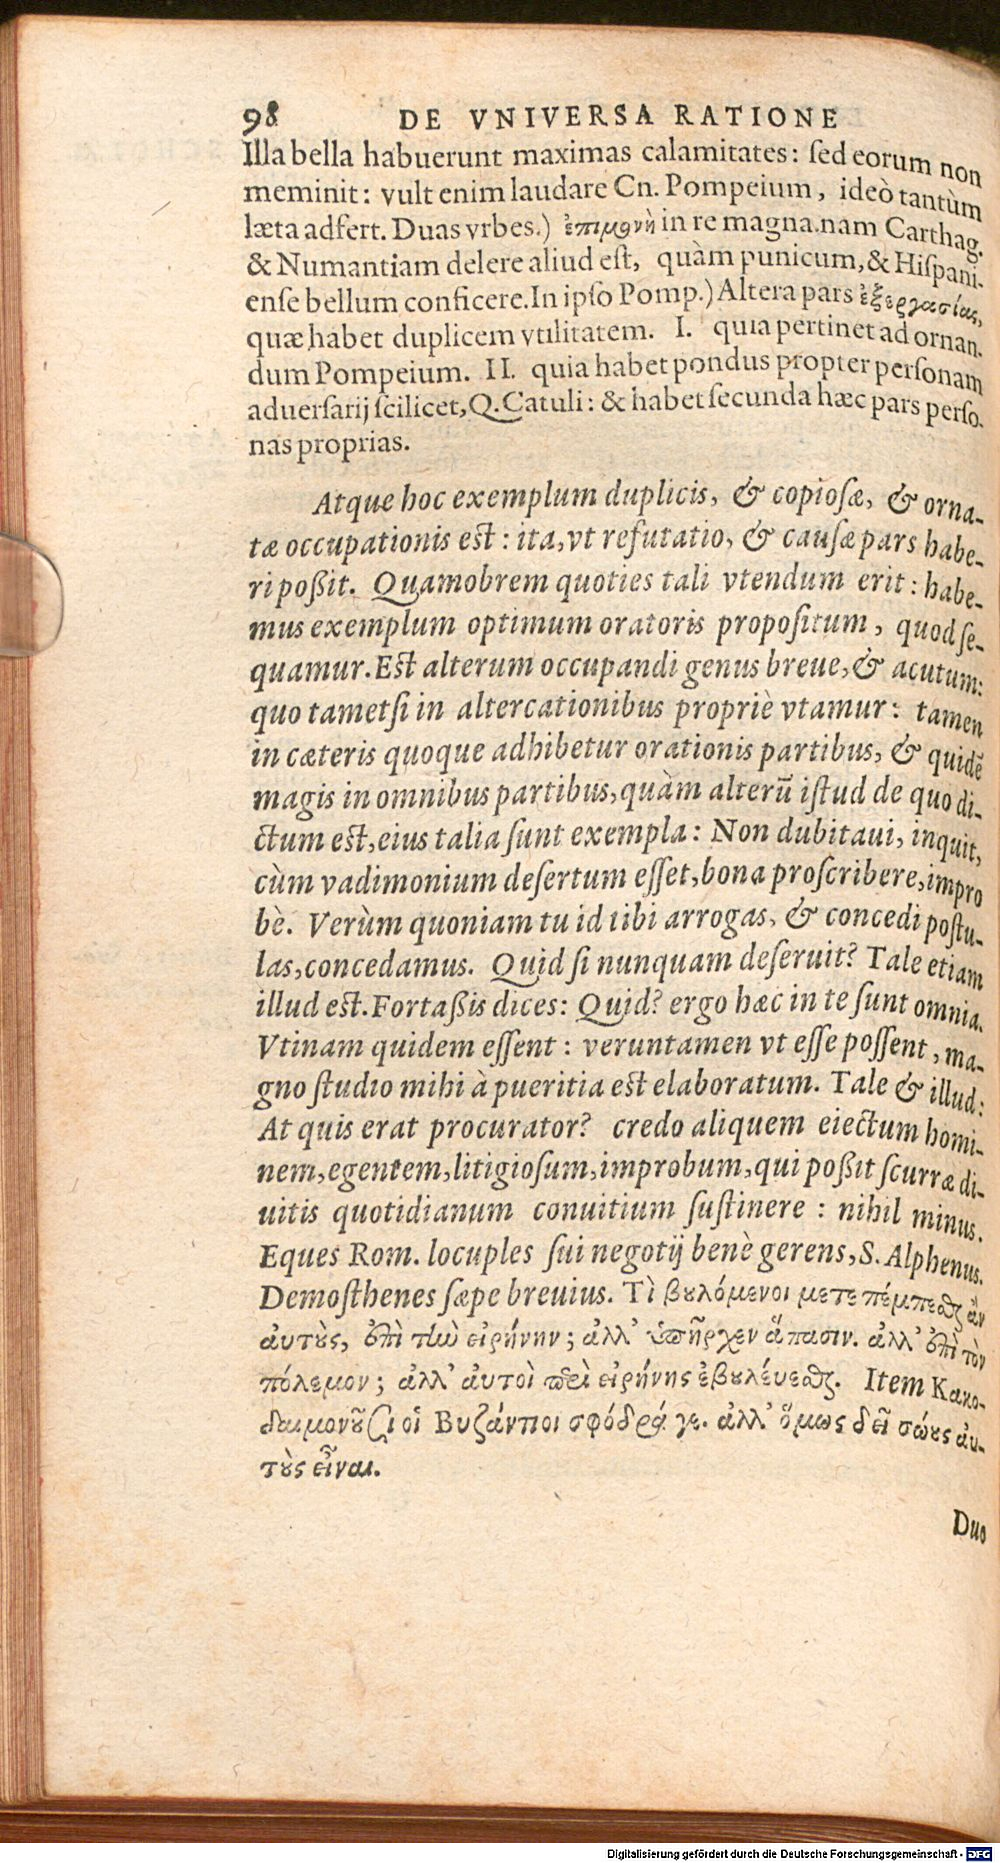 98 DE VNIVERSA RATIONE
Illa bella habuerunt maximas calamitates: sed eorum non
meminit: vult enim laudare Cn. Pompeium, ideò tantùm
læta adfert. Duas vrbes.) ἐπιμονὴ in re magna. nam Carthag.
& Numantiam delere aliud est, quàm punicum, & Hispani-
ense bellum conficere. In ipso Pomp.) Altera pars ἐξεργασίας,
quæ habet duplicem vtilitatem. I. quia pertinet ad ornan-
dum Pompeium. II. quia habet pondus propter personam
aduersarij scilicet, Q. Catuli: & habet secunda hæc pars perso-
nas proprias.
Atque hoc exemplum duplicis, & copiosæ, & orna-
tæ occupationis est: ita, vt refutatio, & causæ pars habe-
ri poßit. Quamobrem quoties tali vtendum erit: habe-
mus exemplum optimum oratoris propositum, quod se-
quamur. Est alterum occupandi genus breue, & acutum:
quo tametsi in altercationibus propriè vtamur: tamen
in cæteris quoque adhibetur orationis partibus, & quidē
magis in omnibus partibus, quàm alterū istud de quo di-
ctum est, eius talia sunt exempla: Non dubitaui, inquit,
cùm vadimonium desertum esset, bona proscribere, impro
bè. Verùm quoniam tu id tibi arrogas, & concedi postu-
las, concedamus. Quid si nunquam deseruit? Tale etiam
illud est. Fortaßis dices: Quid? ergo hæc in te sunt omnia.
Vtinam quidem essent: veruntamen vt esse possent, ma-
gno studio mihi à pueritia est elaboratum. Tale & illud:
At quis erat procurator? credo aliquem eiectum homi-
nem, egentem, litigiosum, improbum, qui poßit scurræ di-
uitis quotidianum conuitium sustinere: nihil minus.
Eques Rom. locuples sui negotij benè gerens, S. Alphenus.
Demosthenes sæpe breuius. Τὶ βυλόμενοι μετεπέμπεσθ ἂν
αυτȣ̀ς, ἐπὶ τὴν εἰρήνην; ἀλλ' ὑπῆρχεν ἅπασιν. ἀλλ' ἐπὶ τὸν
πόλεμον; ἀλλ' ἀυτοὶ περὶ εἰρήνης ἐβȣλέυεσθε. Item Κακο-
δαιμονȣ̃σι οἱ Βυζάντιοι σφόδρά γε. ἀλλ' ὅμως δεῖ σώȣς ἀυ-
τȣ̀ς εἶναι.
Duo
Digitalisierung gefördert durch die Deutsche Forschungsgemeinschaft - DFG